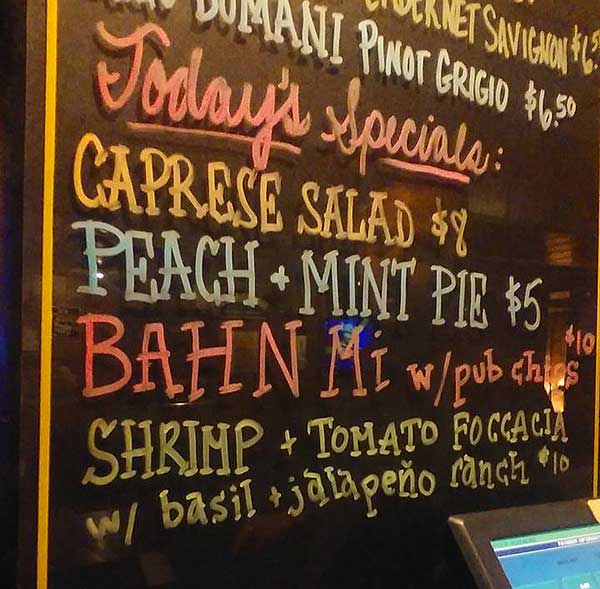 CABERNET SAVIGNON $6.5
DUMANI PINOT GRIGIO $6.50
Today's Specials:
CAPRESE SALAD $8
PEACH + MINT PIE $5
BAHN Mi w/pub chips $10
SHRIMP + TOMATO FOCCACIA
w/ basil + jalapeño ranch $10